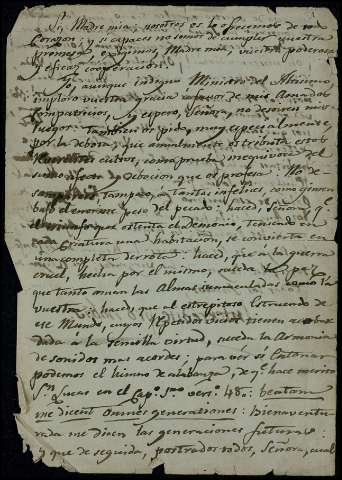 Si, Madre mia, nosotros os lo ofrecemos de todo
Corazon: y si capaces no somos de cumplir vuestra
promesa exigimos, Madre mia, vuestra poderosa
y eficaz cooperacion.
Yo, aunque indigno Ministro del Altisimo
imploro vuestra gracia a favor de mis Amados
Compatricios, y espero, Señora, no desoireis mis
ruegos. Tambien os pido, muy especialmente,
por la devota, que anualmente os tributa estos
cultos, como prueba inequivoca del
afecto y debocion que os profesa: No de-
tampoco, a tantas infelices como gimen
bajo el enorme peso del pecado: haced, Señora, qe
el triunfo que ostenta el demonio, teniendo en
cada Criatura una habitacion, se convierta en
una completa derrota: haced, que a la guerra
cruel, hecha por el mismo, suceda la paz,
que tanto aman las Almas como la
vuestra: haced, que al estrepitoso Estruendo de
ese Mundo, cuyos Pecadores tienen
dida a la sencilla virtud, suceda la Armonia
de sonidos mas acordes; para ver si entonar
podemos el himno de alabanza, de qe hace merito
Sn Lucas en el Capo 1mo verso 48: beatam
me dicent omnes generationes: Bienaventu-
rada me dicen las generaciones futuras:
y que de seguida, postrados todos, Señora, cual